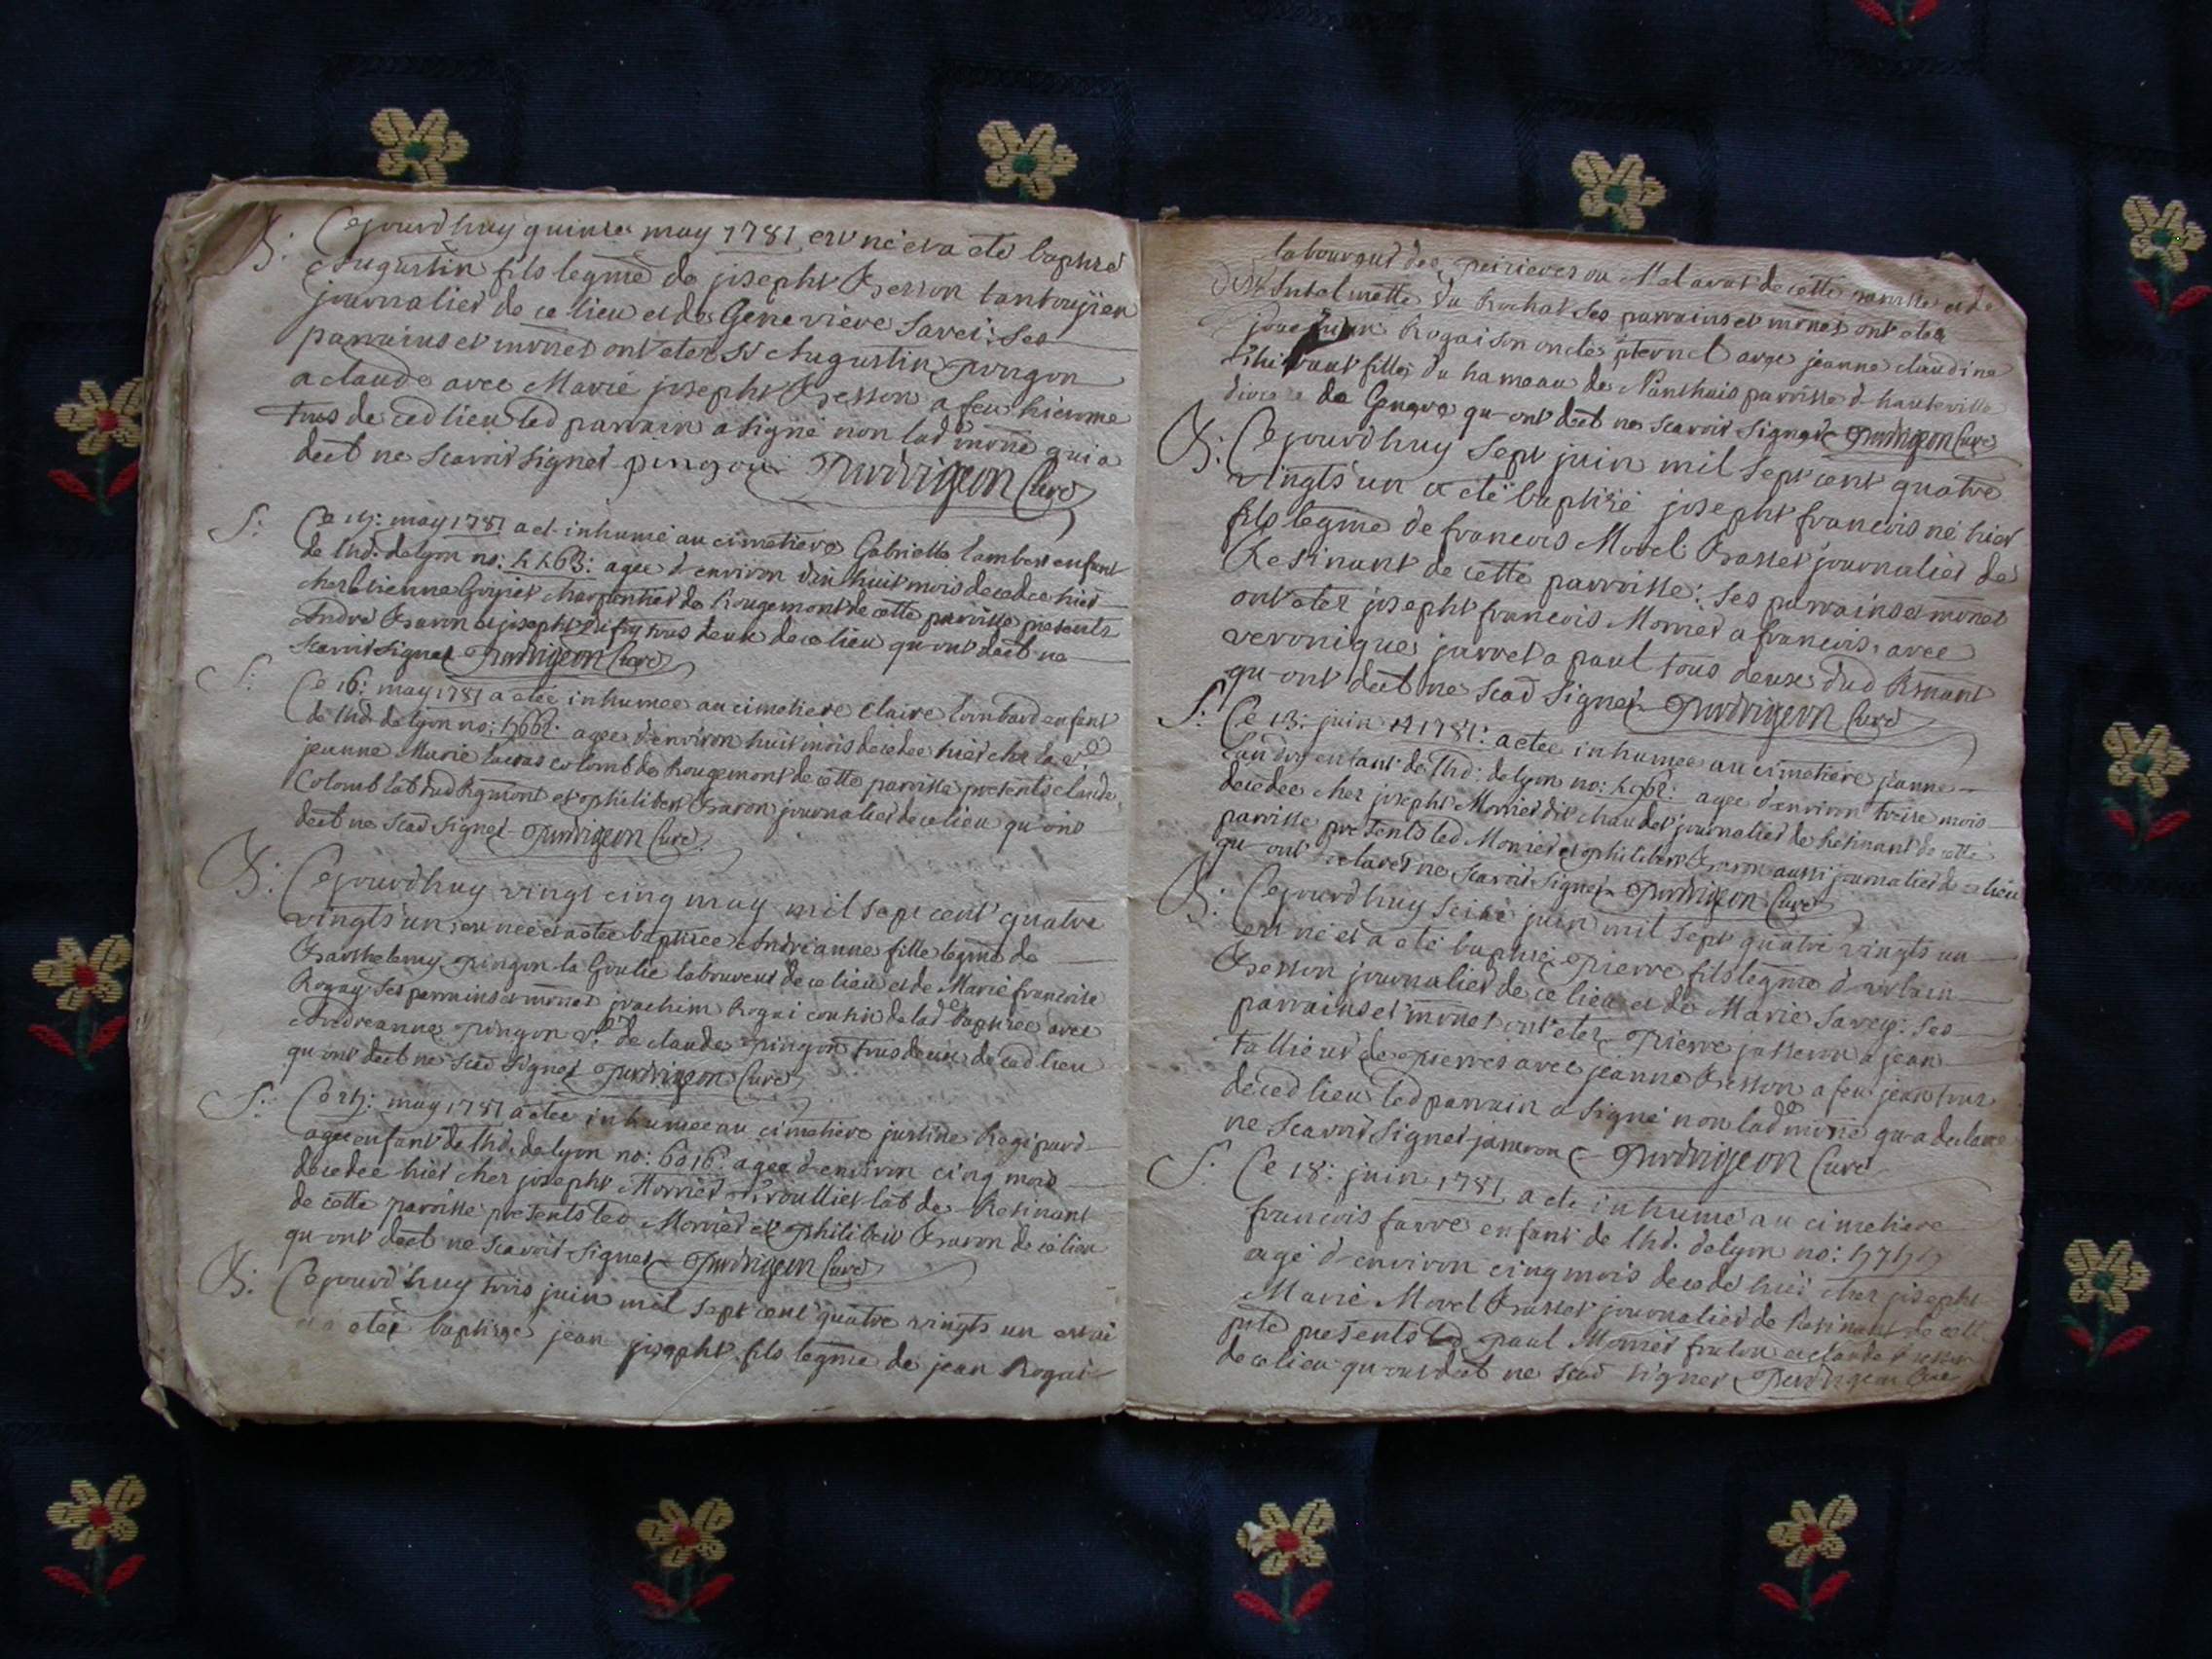 B: Cejourdhuy quinze may 1781 est né et a eté baptisé
Augustin fils legme de josepht Besson
journalier de ce lieu et de Genevieve Savei: ses
parrains et mones ont etez Sr Augustin pingon
a claude avec Marie josepht Besson a feu hierome
tous de ced lieu led parrain a signé non lad mone qui a
dect ne scavoir signer pingon Purdrigeon Curé
S: Ce may 1781 a et inhumé au cimetiere Gabrielle Lambert enfant
de lhd. de lyon no: agée d'environ dix huit mois decedée hier
chez Etienne charpentier de Rougemont de cette parroisse presents
André Baron et josepht tous deux de ce lieu qu'ont dect ne
scavoir signer Purdrigeon Curé
S: Ce 16: may 1781 a etée inhumée au cimetiere Claire Lombard enfant
de lhd. de lyon no: agée d'environ huit mois decedée hier chez la
jeanne Marie colomb de Rougemont de cette parroisse presents claude
Colomb lab dud Rgmont et philibert Baron journalier de ce lieu qu'ont
dect ne scad signer Purdrigeon Curé
B: Cejourdhuy vingt cinq may mil sept cent quatre
vingts un est née et a etée baptisée Andreanne fille legme de
Barthelemy pingon la Goulie laboureur de ce lieu et de Marie francoise
Rogay ses parrains et mones joachim Rogai cousin de lad baptisée avec
Andreanne pingon de claude pingon tous deux de ced lieu
qu'ont dect ne scad signer Purdrigeon Curé
S: Ce may 1781 a etée inhumée au cimetiere justine
agée enfant de lhd. de lyon no: 6016: agée d'environ cinq mois
decedée hier chez josepht Morrier lab de Resinant
de cette parroisse presents led Morrier et philibert Baron de ce lieu
qu'ont dect ne scavoir signer Purdrigeon Curé
B: Cejourd'huy trois juin mil sept cent quatre vingts un est né
et a etez baptisez jean josepht fils legme de jean Rogai
laboureur des ou de cette parroisse et de
du Rochat ses parrains et mones ont etez
Rogaison oncle pternel avec jeanne claudine
fille du hameau de parroisse d'hauteville
diocese de Geneve qu'ont dect ne scavoir signer Purdrigeon Curé
B: Cejourdhuy sept juin mil sept cent quatre
vingts un a eté baptisé josepht francois né hier
fils legme de francois Morel Basset journalier de
Resinant de cette parroisse: ses parrains et mones
ont etez josepht francois Morrier a francois avec
veronique jarret a paul tous deux dud Rsnant
qu'ont dect ne scad signer Purdrigeon Curé
S: Ce 13: juin 1781: a etée inhumée au cimetiere jeanne
enfant de lhd: de lyon no: agée d'environ treise mois
decedée chez josepht Morrier dit chaudet journalier de Resinant de cette
parroisse presents led Morrier et philibert Baron aussi journalier de ce lieu
qu'ont declarer ne scavoir signer Purdrigeon Curé
B: Cejourdhuy seise juin mil sept quatre vingts un
est né et a eté baptisé pierre fils legme d'urbain
Besson journalier de ce lieu et de Marie Savey: ses
parrains et mones ont etez pierre a jean
tallieur de pierres avec jeanne Besson a feu jean tous
de ced lieu led parrain a signé non lad mone qu'a declaré
ne scavoir signer Purdrigeon Curé
S: Ce 18: juin 1781 a ete inhumé au cimetiere
francois favre enfant de lhd. de lyon no:
agé d'environ cinq mois decedé hier chez josepht
Marie Morel Basset journalier de Resinant de cette
psse presents led paul Morrier et claude Besson
de ce lieu qu'ont dect ne scad signer Purdrigeon Curé